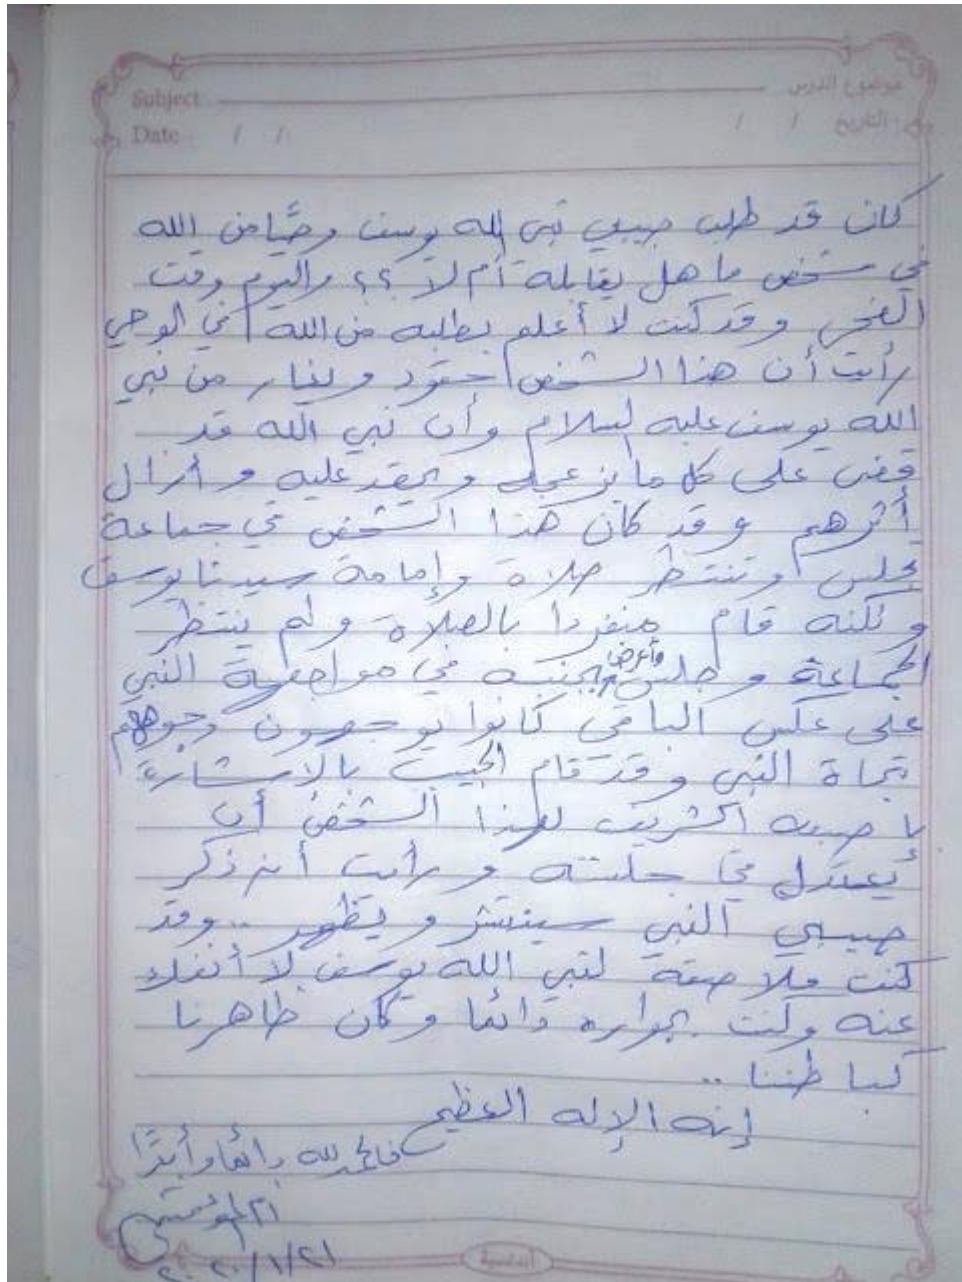 Subject
موضوع الدرس
Date / /
التاريخ : / /
كان قد طلب حبيبي نبي الله يوسف وحيًا من الله
في شخص ما هل يقابله أم لا ؟؟ واليوم وقت
الفجر وقد كنت لا أعلم بطلبه من الله في الوحي
رأيت أن هذا الشخص حقود ويغار من نبي
الله يوسف عليه السلام وأن نبي الله قد
قضى على كل ما يزعجه ويحقد عليه وأزال
أثرهم وقد كان هذا الشخص في جماعة
تجلس وتنتظر صلاة وإمامة سيدنا يوسف
ولكنه قام منفردا بالصلاة ولم ينتظر
الجماعة وجلس وأعرض بجنبه في مواجهة النبي
على عكس الباقي كانوا يوجهون وجوههم
تجاة النبي وقد قام الحبيب بالإشارة
بإصبعه الشريف لهذا الشخص أن
يعتدل في جلسته ورأيت أن ذكر
حبيبي النبي سينتشر ويظهر .. وقد
كنت ملاصقة لنبي الله يوسف لا أنفك
عنه وكنت بجواره دائما وكان ظاهرنا
كباطننا ..
إنه الإله العظيم
فالحمد لله دائما وأبدًا
أم المؤمنين
٢٠٢٠/١/٢١